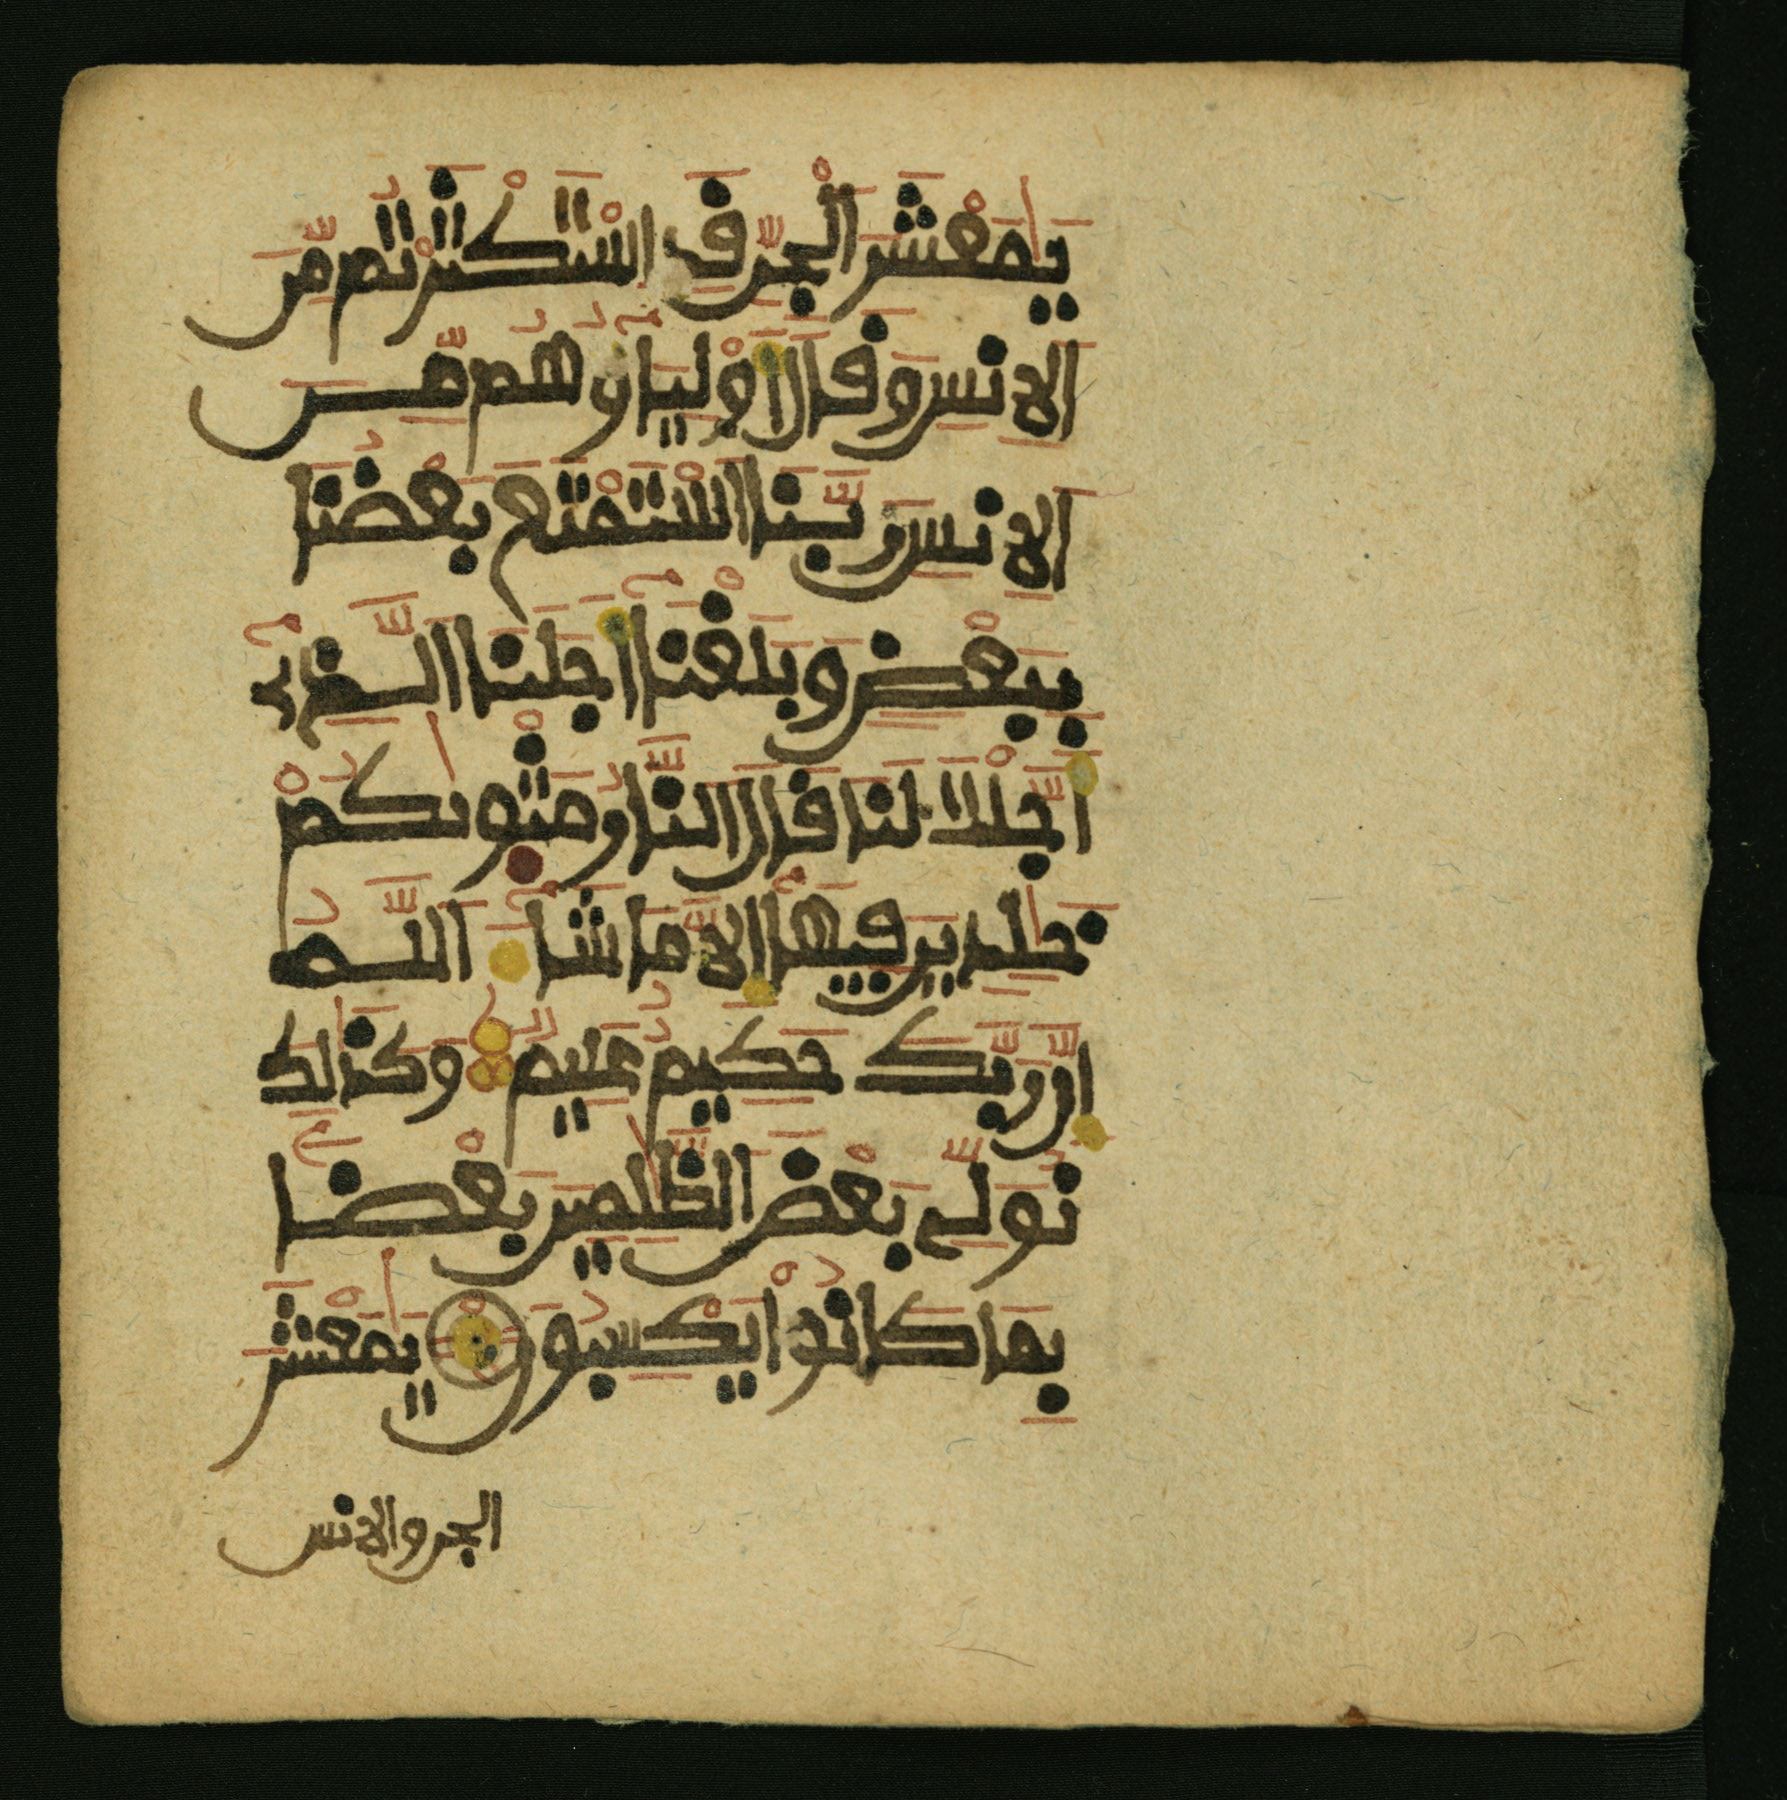 يَٰمَعْشَرَ الْجِنِّ قَدِ اسْتَكْثَرْتُم مِّنَ
الِانسِ وَقَالَ أَوْلِيَاؤُهُم مِّنَ
الِانسِ رَبَّنَا اسْتَمْتَعَ بَعْضُنَا
بِبَعْضٍ وَبَلَغْنَا أَجَلَنَا الَّذِے
أَجَّلْتَ لَنَا قَالَ النَّارُ مَثْوٰىكُمْ
خَٰلِدِينَ فِيهَا إِلَّا مَا شَآءَ اللَّهُ
إِنَّ رَبَّكَ حَكِيمٌ عَلِيمٌ وَكَذَٰلِكَ
نُوَلِّے بَعْضَ الظَّٰلِمِينَ بَعْضًا
بِمَا كَانُوا يَكْسِبُونَ يَٰمَعْشَرَ
الجن والانس